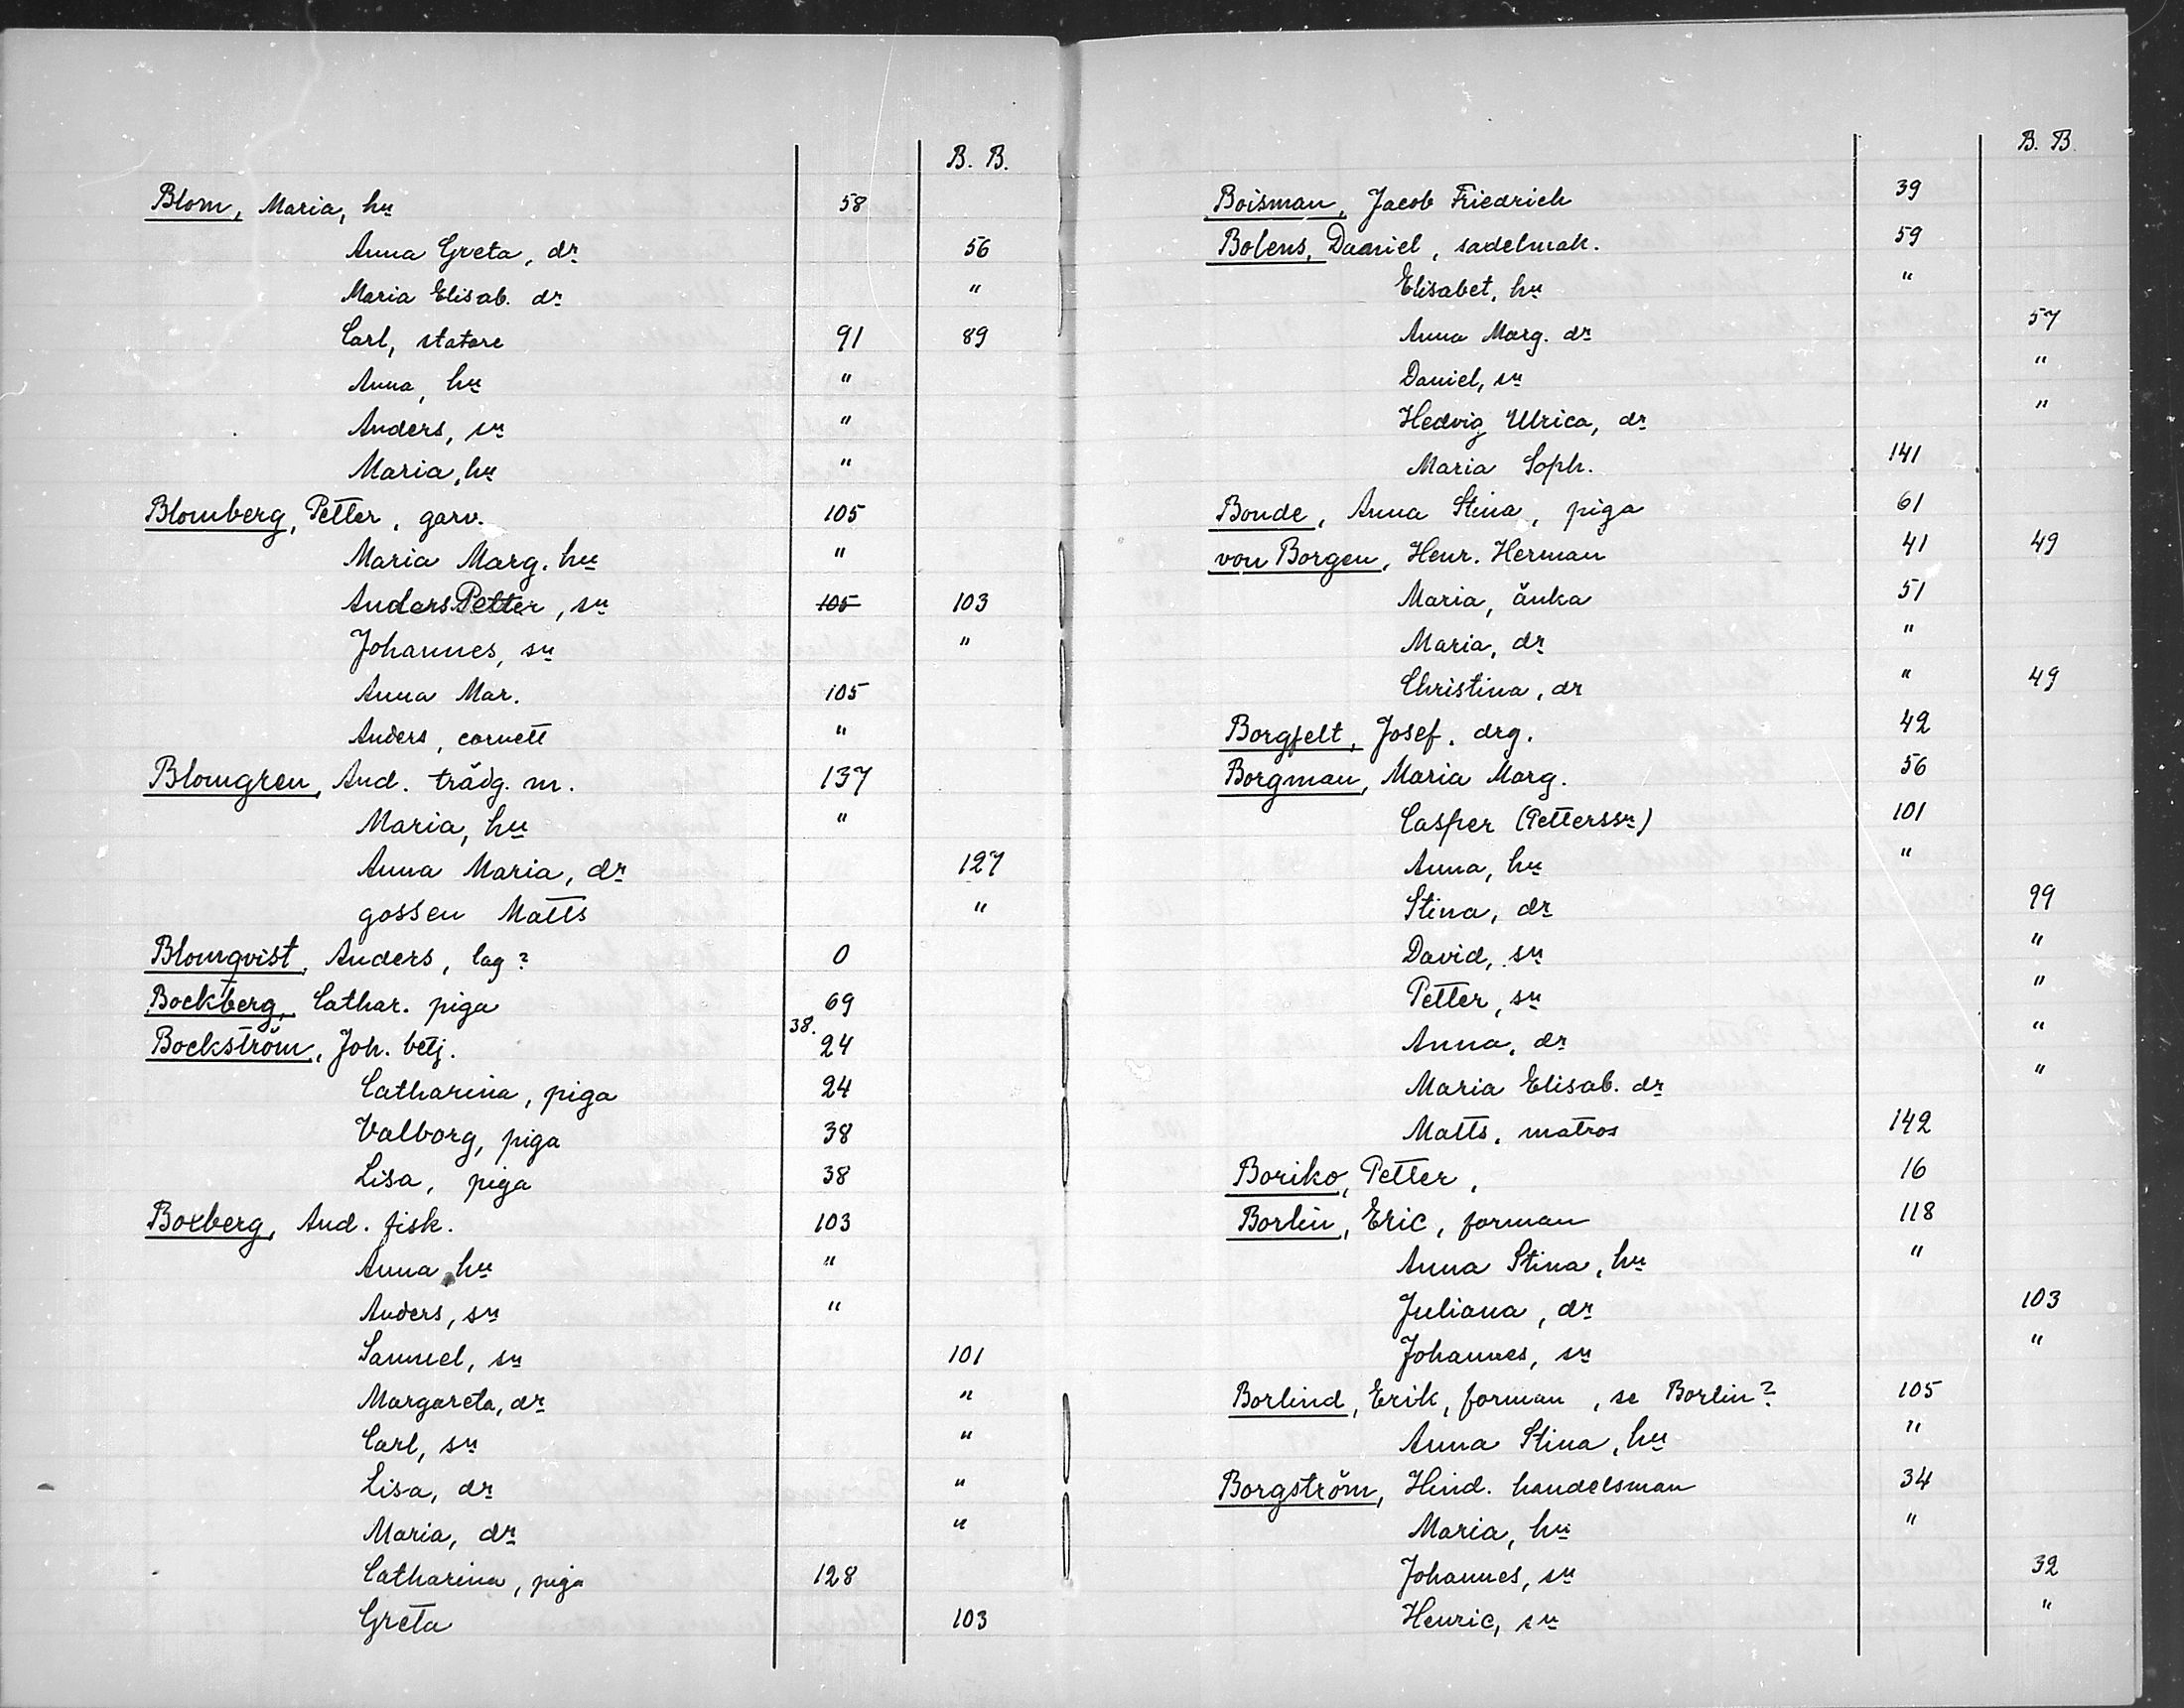 B. B.
Blom, Maria, hu 58
Anna Greta, dr 56
Maria Elisab. dr "
Carl, statare 91 89
Anna, hu "
Anders, sn "
Maria, hu "
Blomberg, Petter, garv. 105
Maria Marg. hu "
Anders Petter, sn 105 103
Johannes, sn "
Anna Mar. 105
Anders, cornett "
Blomgren, And. trädg. m. 137
Maria, hu "
Anna Maria, dr 127
gossen Matts "
Blomqvist, Anders, lag? 0
Bockberg, Cathar. piga 69
Bockström, Joh. betj. 38. 24
Catharina, piga 24
Valborg, piga 38
Lisa, piga 38
Boxberg, And. fisk. 103
Anna, hu "
Anders, sn "
Samuel, sn 101
Margareta, dr "
Carl, sn "
Lisa, dr "
Maria, dr "
Catharina, piga 128
Greta 103
B. B.
Boisman, Jacob Friedrich 39
Bolens, Daniel, sadelmak. 59
Elisabet, hu "
Anna Marg. dr 57
Daniel, sn "
Hedvig Ulrica, dr "
Maria Soph. 141
Bonde, Anna Stina, piga 61
von Borgen, Henr. Herman 41 49
Maria, änka 51
Maria, dr "
Christina, dr " 49
Borgfelt, Josef, drg. 42
Borgman, Maria Marg. 56
Casper (Petterssn) 101
Anna, hu "
Stina, dr 99
David, sn "
Petter, sn "
Anna, dr "
Maria Elisab. dr "
Matts, matros 142
Boriko, Petter, 16
Borlin, Eric, forman 118
Anna Stina, hu "
Juliana, dr 103
Johannes, sn "
Borlind, Erik, forman, se Borlin? 105
Anna Stina, hu "
Borgström, Hind. handelsman 34
Maria, hu "
Johannes, sn 32
Henric, sn "